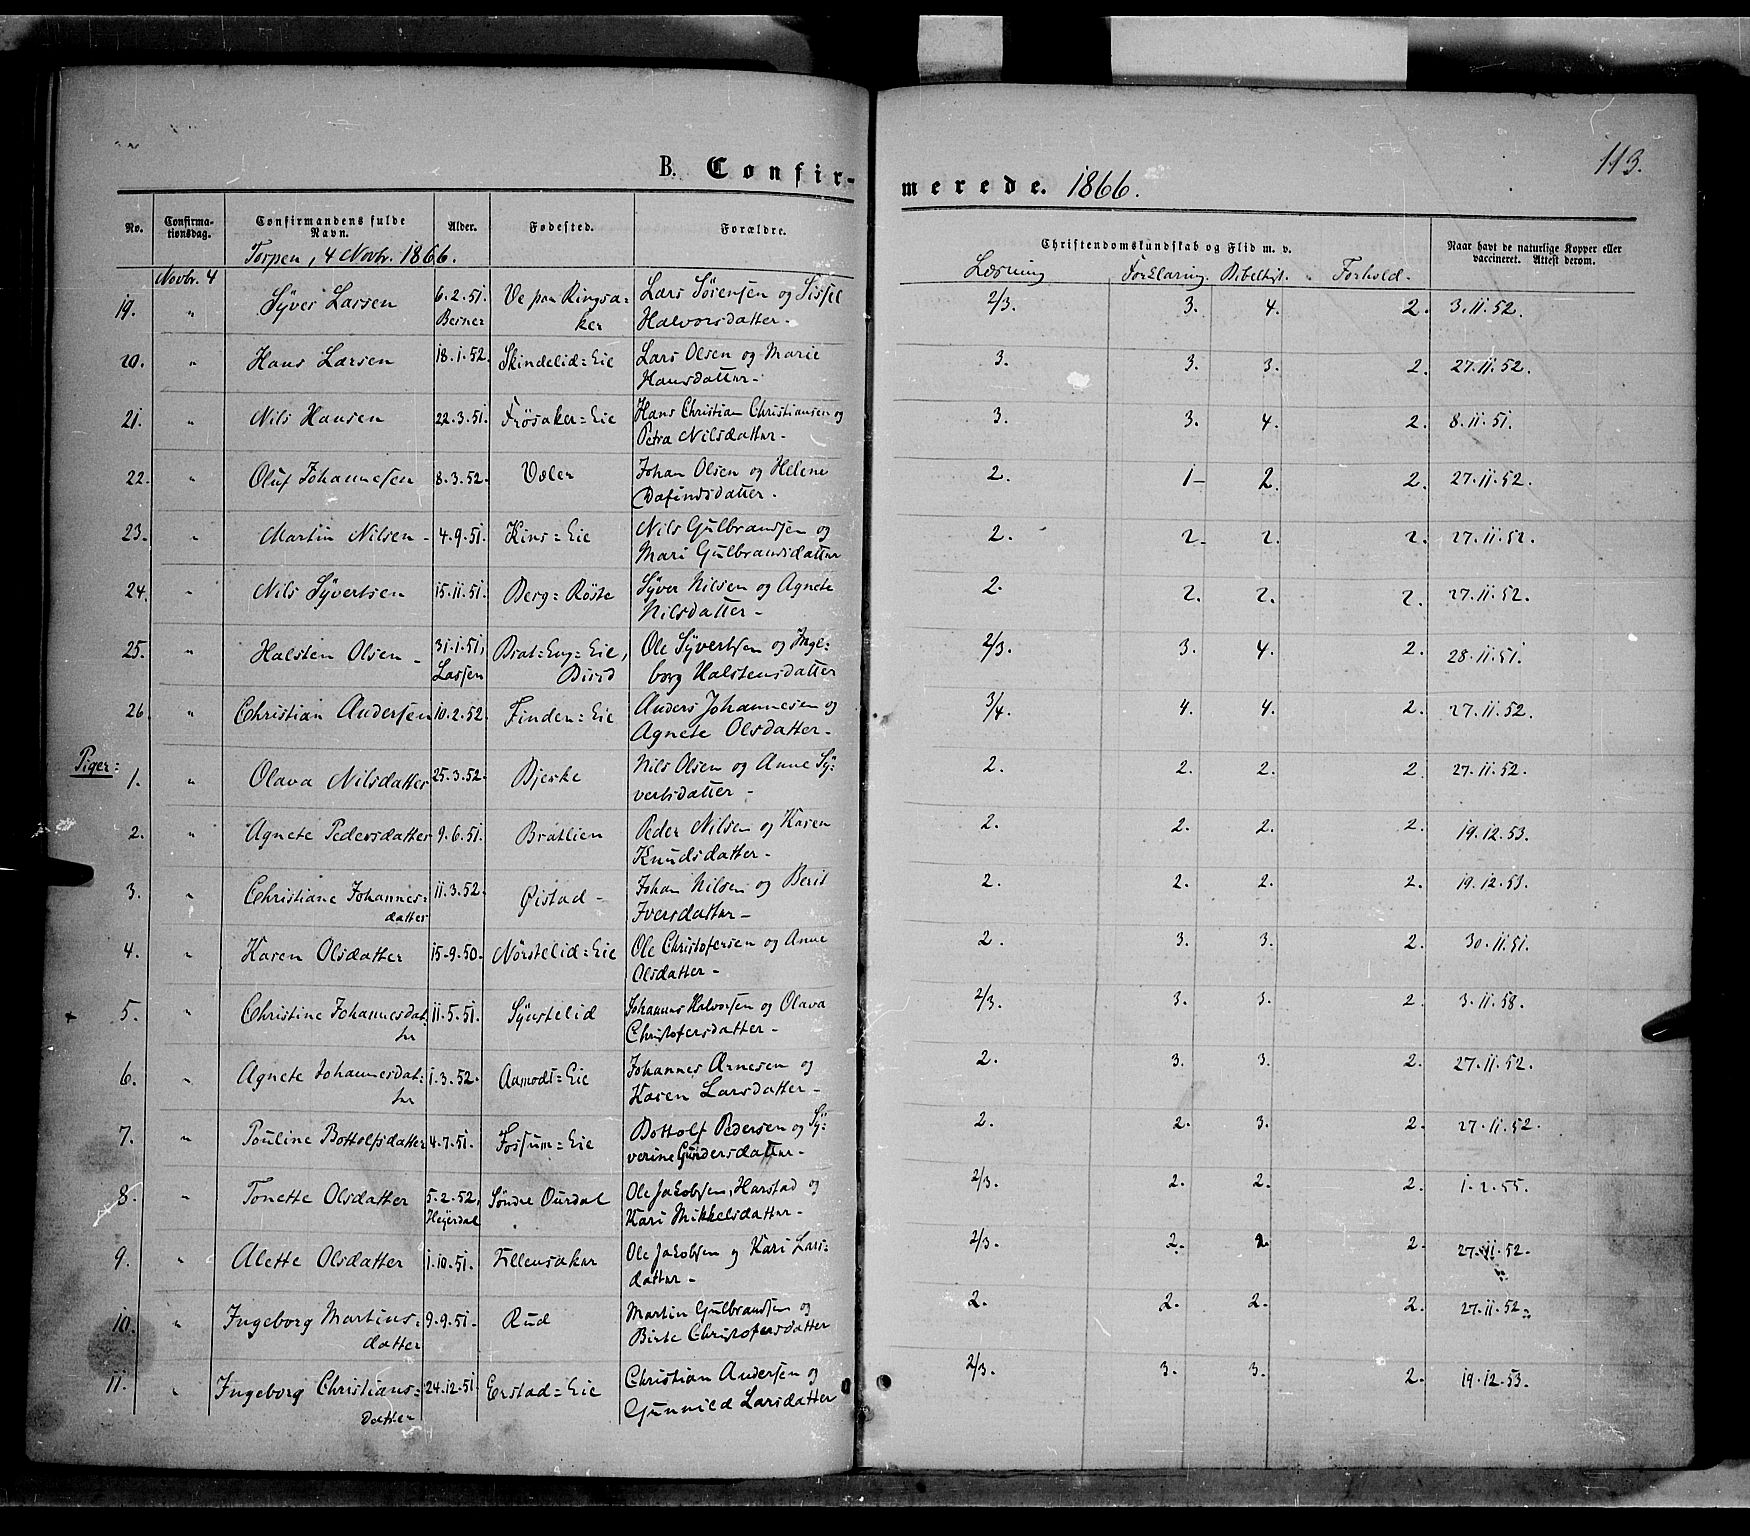 113.
B. Confir-
merede. 1866.
No. Confirma-tionsdag. Confirmandens fulde Navn. Alder. Fødested. Forældre. Christendomskundskab og Flid m. v. Naar havt de naturlige Kopper eller vaccineret. Attest derom.
Torpen, 4 Novbr. 1866.
Læsning Forklaring. Bibelhist. Forhold.
Novbr. 4
19. " Syver Larsen 6.2.51. Ve paa Ringsa- Lars Sörensen og Sissel 2/3. 3. 4. 2. 3.11.52.
Berner ker Halvorsdatter-
20. " Hans Larsen 18.1.52. Skindelid=Eie Lars Olsen og Marie 3. 3. 3. 2. 27.11.52.
Hansdatter-
21. " Nils Hansen 22.3.51. Frösaker=Eie Hans Christian Christiansen og 3. 3. 4. 2. 8.11.51.
Petra Nilsdatter-
22. " Oluf Johannesen 8.3.52. Johan Olsen og Helene 2. 1- 2. 2. 27.11.52.
Dafindsdatter.
23. " Martin Nilsen- 4.9.51. Kins=Eie Nils Gulbrandsen og 2. 2- 2. 2. 27.11.52.
Mari Gulbrandsdatter
24. " Nils Syvertsen 15.11.51. Berg=Röste Syver Nilsen og Agnete 2. 2. 2. 2. 27.11.52.
Nilsdatter-
25. " Halsten Olsen- 31.1.51, Brat=Eng=Eie, Ole Syvertsen og Inge= 2/3. 3. 4. 2. 28.11.51.
Lassen Birid borg Halstensdatter
26. " Christian Andersen 10.2.52. Finden=Eie Anders Johannesen og 3/4. 4. 4. 2. 27.11.52.
Agnete Olsdatter-
Piger:
1. " Olava Nilsdatter 25.3.52. Bjerke Nils Olsen og Anne Sy= 2. 2. 2. 2. 27.11.52.
vertsdatter-
2. " Agnete Pedersdatter 9.6.51. Bratlien Peder Nilsen og Karen 2. 2. 2. 2. 19.12.53.
Knudsdatter-
3. " Christiane Johannes= 11.3.52. Øistad- Johan Nilsen og Berit 2. 2. 2. 2. 19.12.53.
datter Iversdatter-
4. " Karen Olsdatter 15.9.50. Nörstelid=Eie Ole Christofersen og Anne 2. 3. 3. 2. 30.11.51.
Olsdatter-
5. " Christine Johannesdat= 11.5.51. Synstelid Johannes Halvorsen og Olava 2/3. 3. 3. 2. 3.11.58.
ter Christofersdatter-
6. " Agnete Johannesdat= 1.3.52. Aamodt=Eie Johannes Arnesen og 2. 3. 3. 2. 27.11.52.
ter Karen Larsdatter-
7. " Pouline Bottolfsdatter 4.7.51. Fossum=Eie Bottolf Pedersen og Sy= 2. 2. 3. 2. 27.11.52.
verine Gundersdatter-
8. " Tonette Olsdatter 5.2.52, Söndre Ourdal Ole Jakobsen, Harstad og 2/3. 2. 2. 2. 1.2.55.
Heyerdal Kari Mikkelsdatter-
9. " Alette Olsdatter 1.10.51. Fillensaker Ole Jakobsen og Kari Lars= 2/3. 2- 2. 2. 27.11.52.
datter-
10. " Ingeborg Martins= 9.9.51. Rud Martin Gulbrandsen og 2. 2. 2. 2. 27.11.52.
datter Birte Christofersdatter
11. " Ingeborg Christians= 24.12.51. Erstad=Eie Christian Andersen og 2/3. 3. 3. 2. 19.12.53.
datter Gunnild Larsdatter